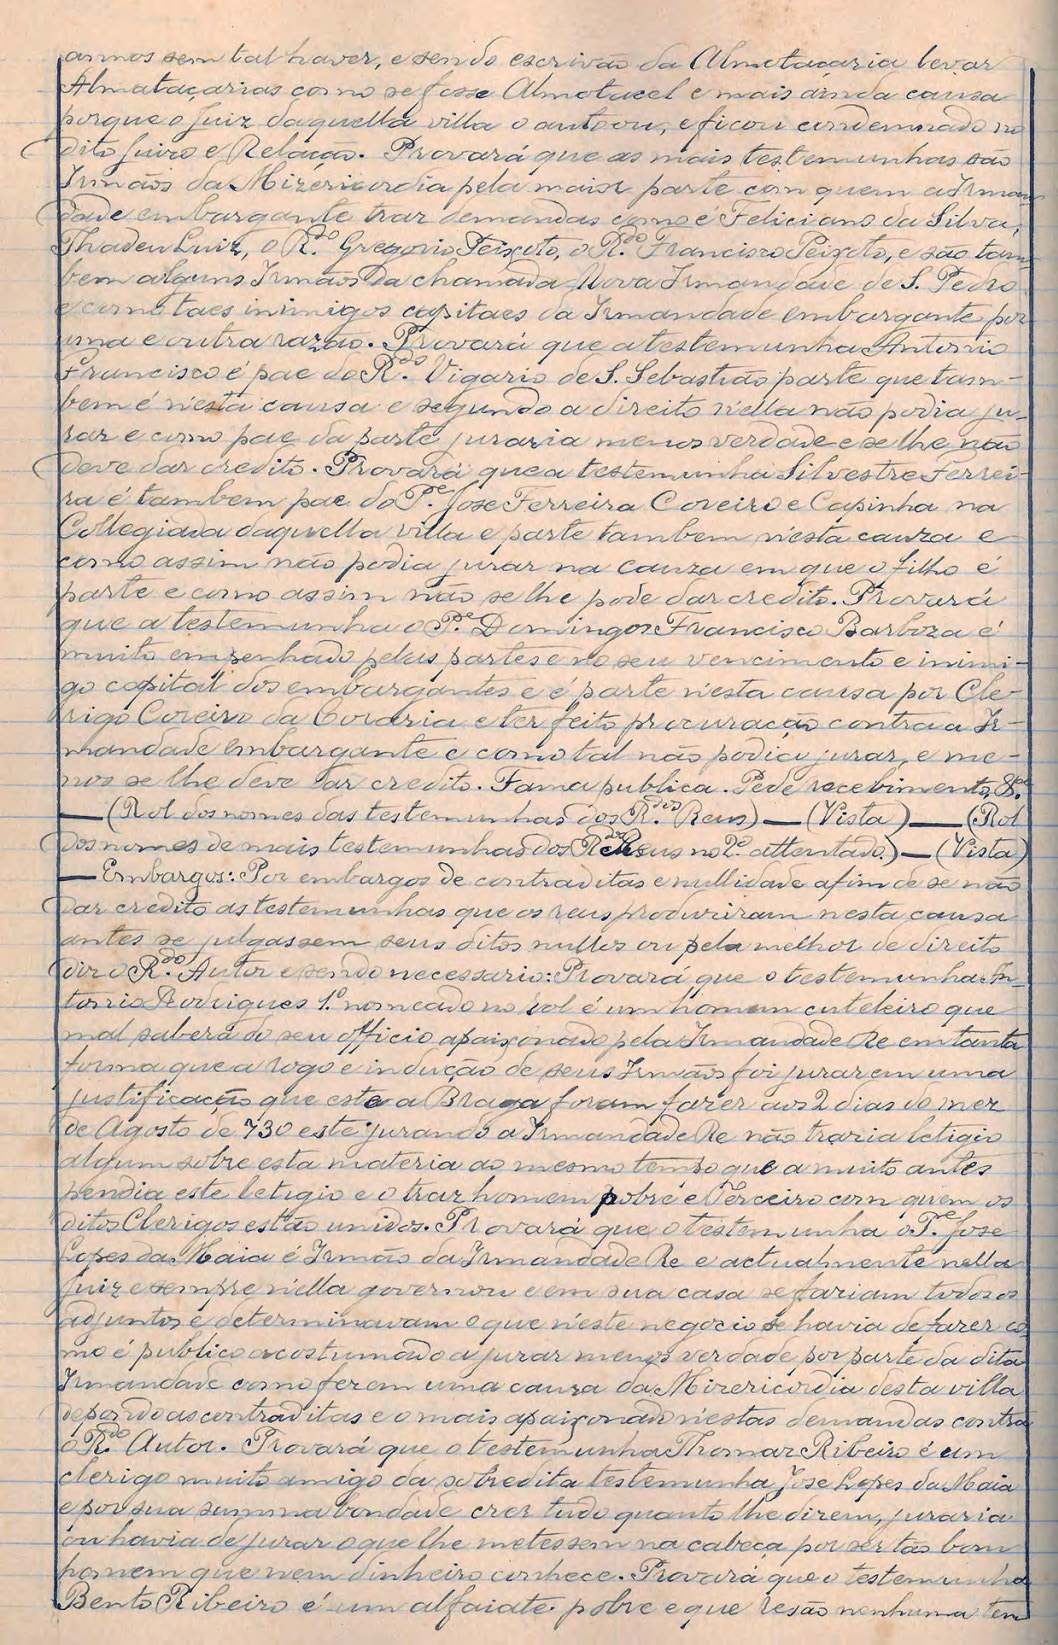 annos sem tal haver, e sendo escrivão da Almotaçaria levar
Almataçarias como se fosse Almotacel e mais ainda causa
porque o Juiz daquella villa o autoou, e ficou condemnado no
dito Juizo e Relação. Provará que as mais testemunhas são
Irmãos da Mizericordia pela maior parte com quem a Irman
dade embargante traz demandas como é Feliciano da Silva,
Thadeu Luiz, o R.do Gregorio Peixoto, o R.do Francisco Peixoto, e são tam
bem alguns Irmãos da chamada Nova Irmandade de S. Pedro
e como taes inimigos capitaes da Irmandade embargante por
uma e outra razão. Provará que a testemunha Antonio
Francisco é pae do R.do Vigario de S. Sebastião parte que tam-
bem é n'esta causa e segundo a direito n'ella não podia ju-
rar e como pae da parte juraria menos verdade e se lhe não
deve dar credito. Provará que a testemunha Silvestre Ferrei-
ra é tambem pae do P.e Jose Ferreira Coreiro e Capinha na
Collegiada daquella villa e parte tambem n'esta cauza e
como assim não podia jurar na cauza em que o filho é
parte e como assim não se lhe pode dar credito. Provará
que a testemunha o P.e Domingos Francisco Barboza é
muito empenhado pelas partes e no seu vencimento e inimi-
go capital dos embargantes e é parte n'esta causa por Cle-
rigo Coreiro da Coraria e ter feito procuração contra a Ir-
mandade embargante e como tal não podia jurar, e me-
nos se lhe deve dar credito. Fama publica. Pede recebimento, &.e
— (Rol dos nomes das testemunhas dos R.dos Reus) — (Vista) — (Rol
dos nomes de mais testemunhas dos R.dos Reus no 2.º attentado.) — (Vista)
— Embargos: Por embargos de contraditas e nullidade afim de se não
dar credito as testemunhas que os reus produziram nesta causa
antes se julgassem seus ditos nullos ou pela melhor de direito
diz o R.do Autor e sendo necessario: Provará que o testemunha An-
tonio Rodrigues 1.º nomeado no rol é um homem cuteleiro que
mal saberá do seu officio apaixonado pela Irmandade Re em tanta
forma que a rogo e indução de seus Irmãos foi jurar em uma
justificação que este a Braga foram fazer aos 2 dias do mez
de Agosto de 730 este jurando a Irmandade Re não traria letigio
algum sobre esta materia ao mesmo tempo que a muito antes
pendia este letigio e o traz homem pobre e Terceiro com quem os
ditos Clerigos estão unidos. Provará que o testemunha o P.e Jose
Lopes da Maia é Irmão da Irmandade Re e actualmente nella
Juiz e sempre n'ella governou e em sua casa se faziam todos os
adjuntos e determinavam o que n'este negocio se havia de fazer co
mo é publico acostumado a jurar menos verdade por parte da dita
Irmandade como fez em uma causa da Mizericordia desta villa
depondo as contraditas e o mais apaixonado n'estas demandas contra
o R.do Autor. Provará que o testemunha Thomaz Ribeiro é um
clerigo muito amigo da sobredita testemunha Jose Lopes da Maia
e por sua summa bondade crer tudo quanto lhe dizem, juraria
ou havia de jurar o que lhe metessem na cabeça por ser tão bom
homem que nem dinheiro conhece. Provará que o testemunha
Bento Ribeiro é um alfaiate pobre e que resão nenhuma tem